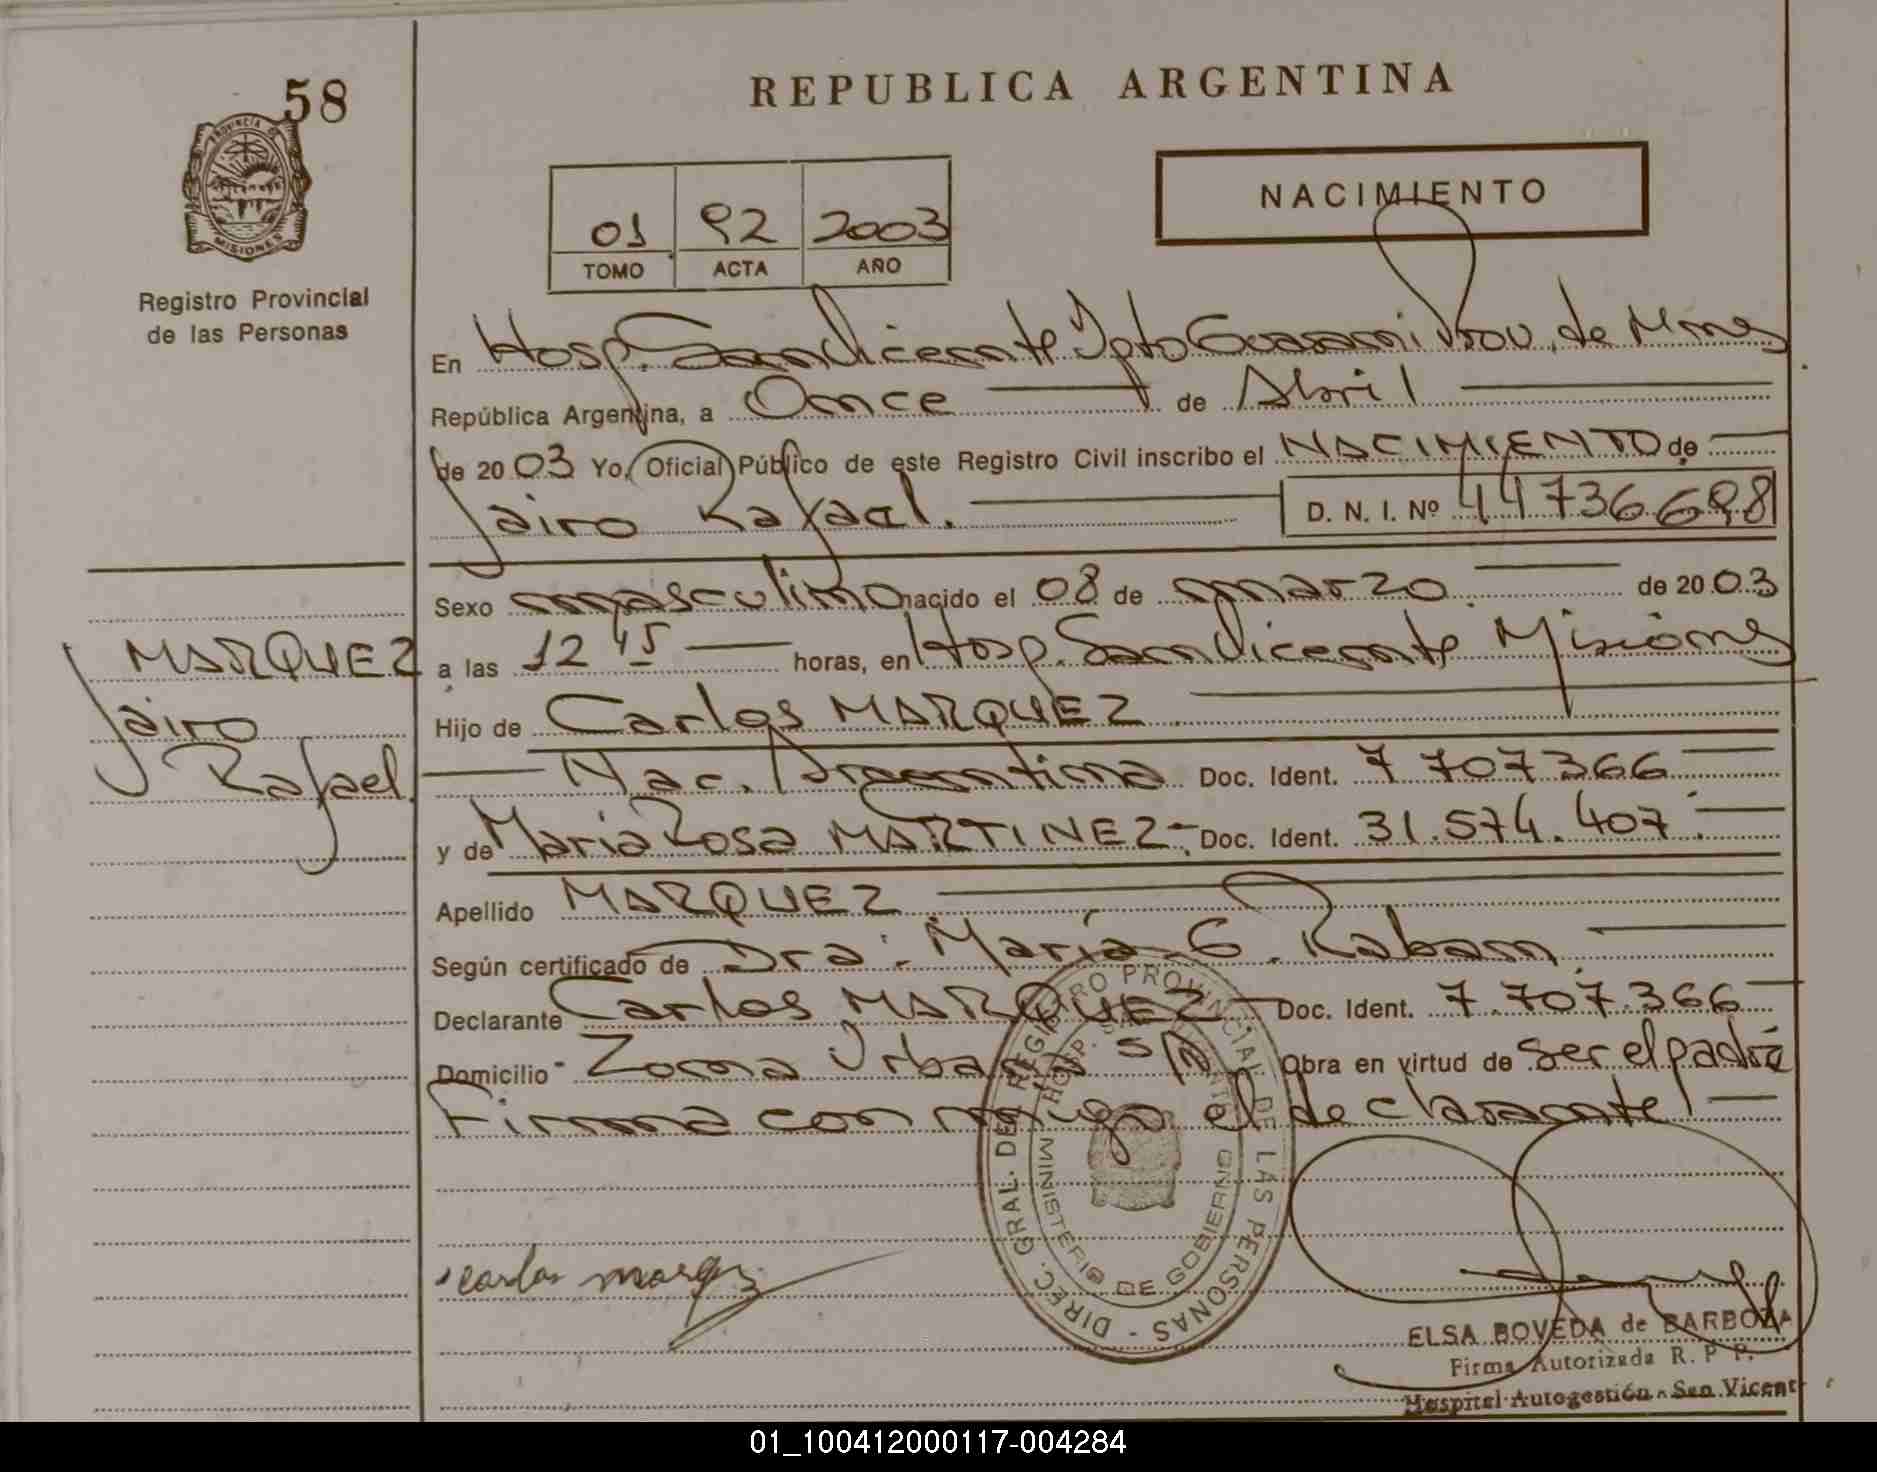 58
PROVINCIA DE
MISIONES
Registro Provincial
de las Personas
REPUBLICA ARGENTINA
NACIMIENTO
01 92 2003
TOMO ACTA AÑO
En Hosp. San Vicente Dpto Guarani Prov. de Mnes
República Argentina, a Once de Abril
de 2003 Yo, Oficial Público de este Registro Civil inscribo el NACIMIENTO de
Jairo Rafael. D. N. I. Nº 44736698
Sexo masculino nacido el 08 de marzo de 2003
MARQUEZ
Jairo
Rafael.
a las 12 45 horas, en Hosp. San Vicente Misiones
Hijo de Carlos MARQUEZ
Nac. Argentina Doc. Ident. 7 707 366
y de Maria Rosa MARTINEZ - Doc. Ident. 31.574.407.
Apellido MARQUEZ
Según certificado de Dra. María G. Raban.
Declarante Carlos MARQUEZ - Doc. Ident. 7.707.366
Domicilio Zona Urbana s/n Obra en virtud de ser el padre
Firma con migo el declarante
carlos marquez
DIREC. GRAL. DEL REGISTRO PROVINCIAL DE LAS PERSONAS -
HOSP. SAN VICENTE
MINISTERIO DE GOBIERNO
ELSA BOVEDA de BARBOZA
Firma Autorizada R. P. P.
Hospital Autogestión - San Vicent
01_100412000117-004284